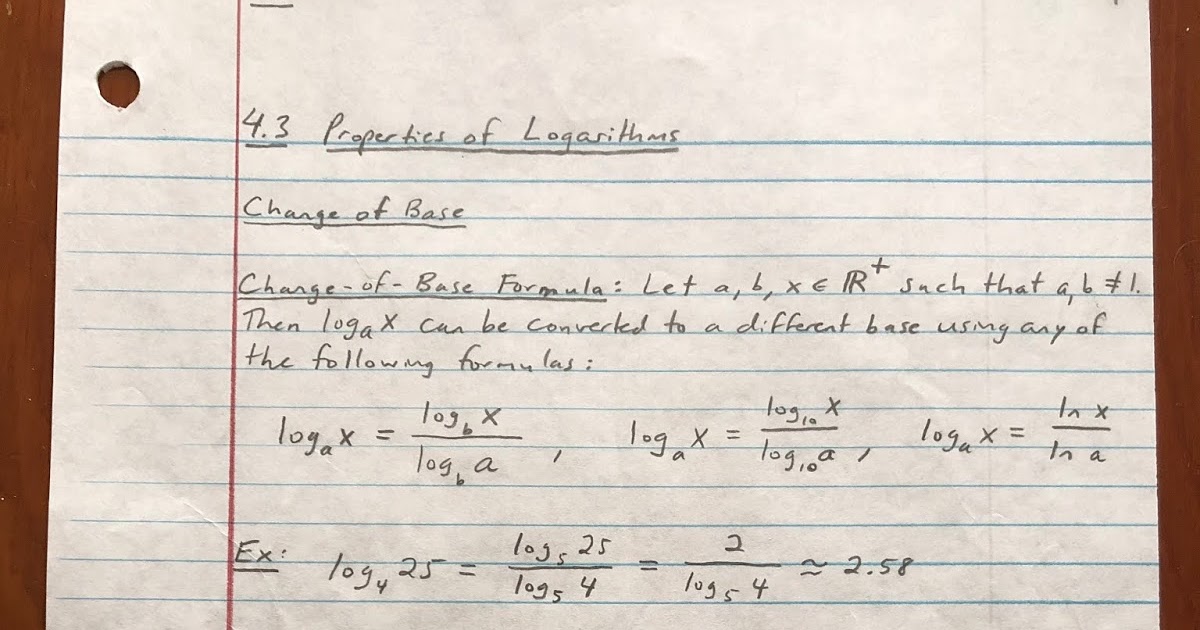 4.3 Properties of Logarithms
Change of Base
Change-of-Base Formula: Let a, b, x ∈ ℝ⁺ such that a, b ≠ 1.
Then logₐ x can be converted to a different base using any of
the following formulas:
logₐ x = log_b x / log_b a , logₐ x = log₁₀ x / log₁₀ a , logₐ x = ln x / ln a
Ex: log₄ 25 = log₅ 25 / log₅ 4 = 2 / log₅ 4 ≈ 2.58